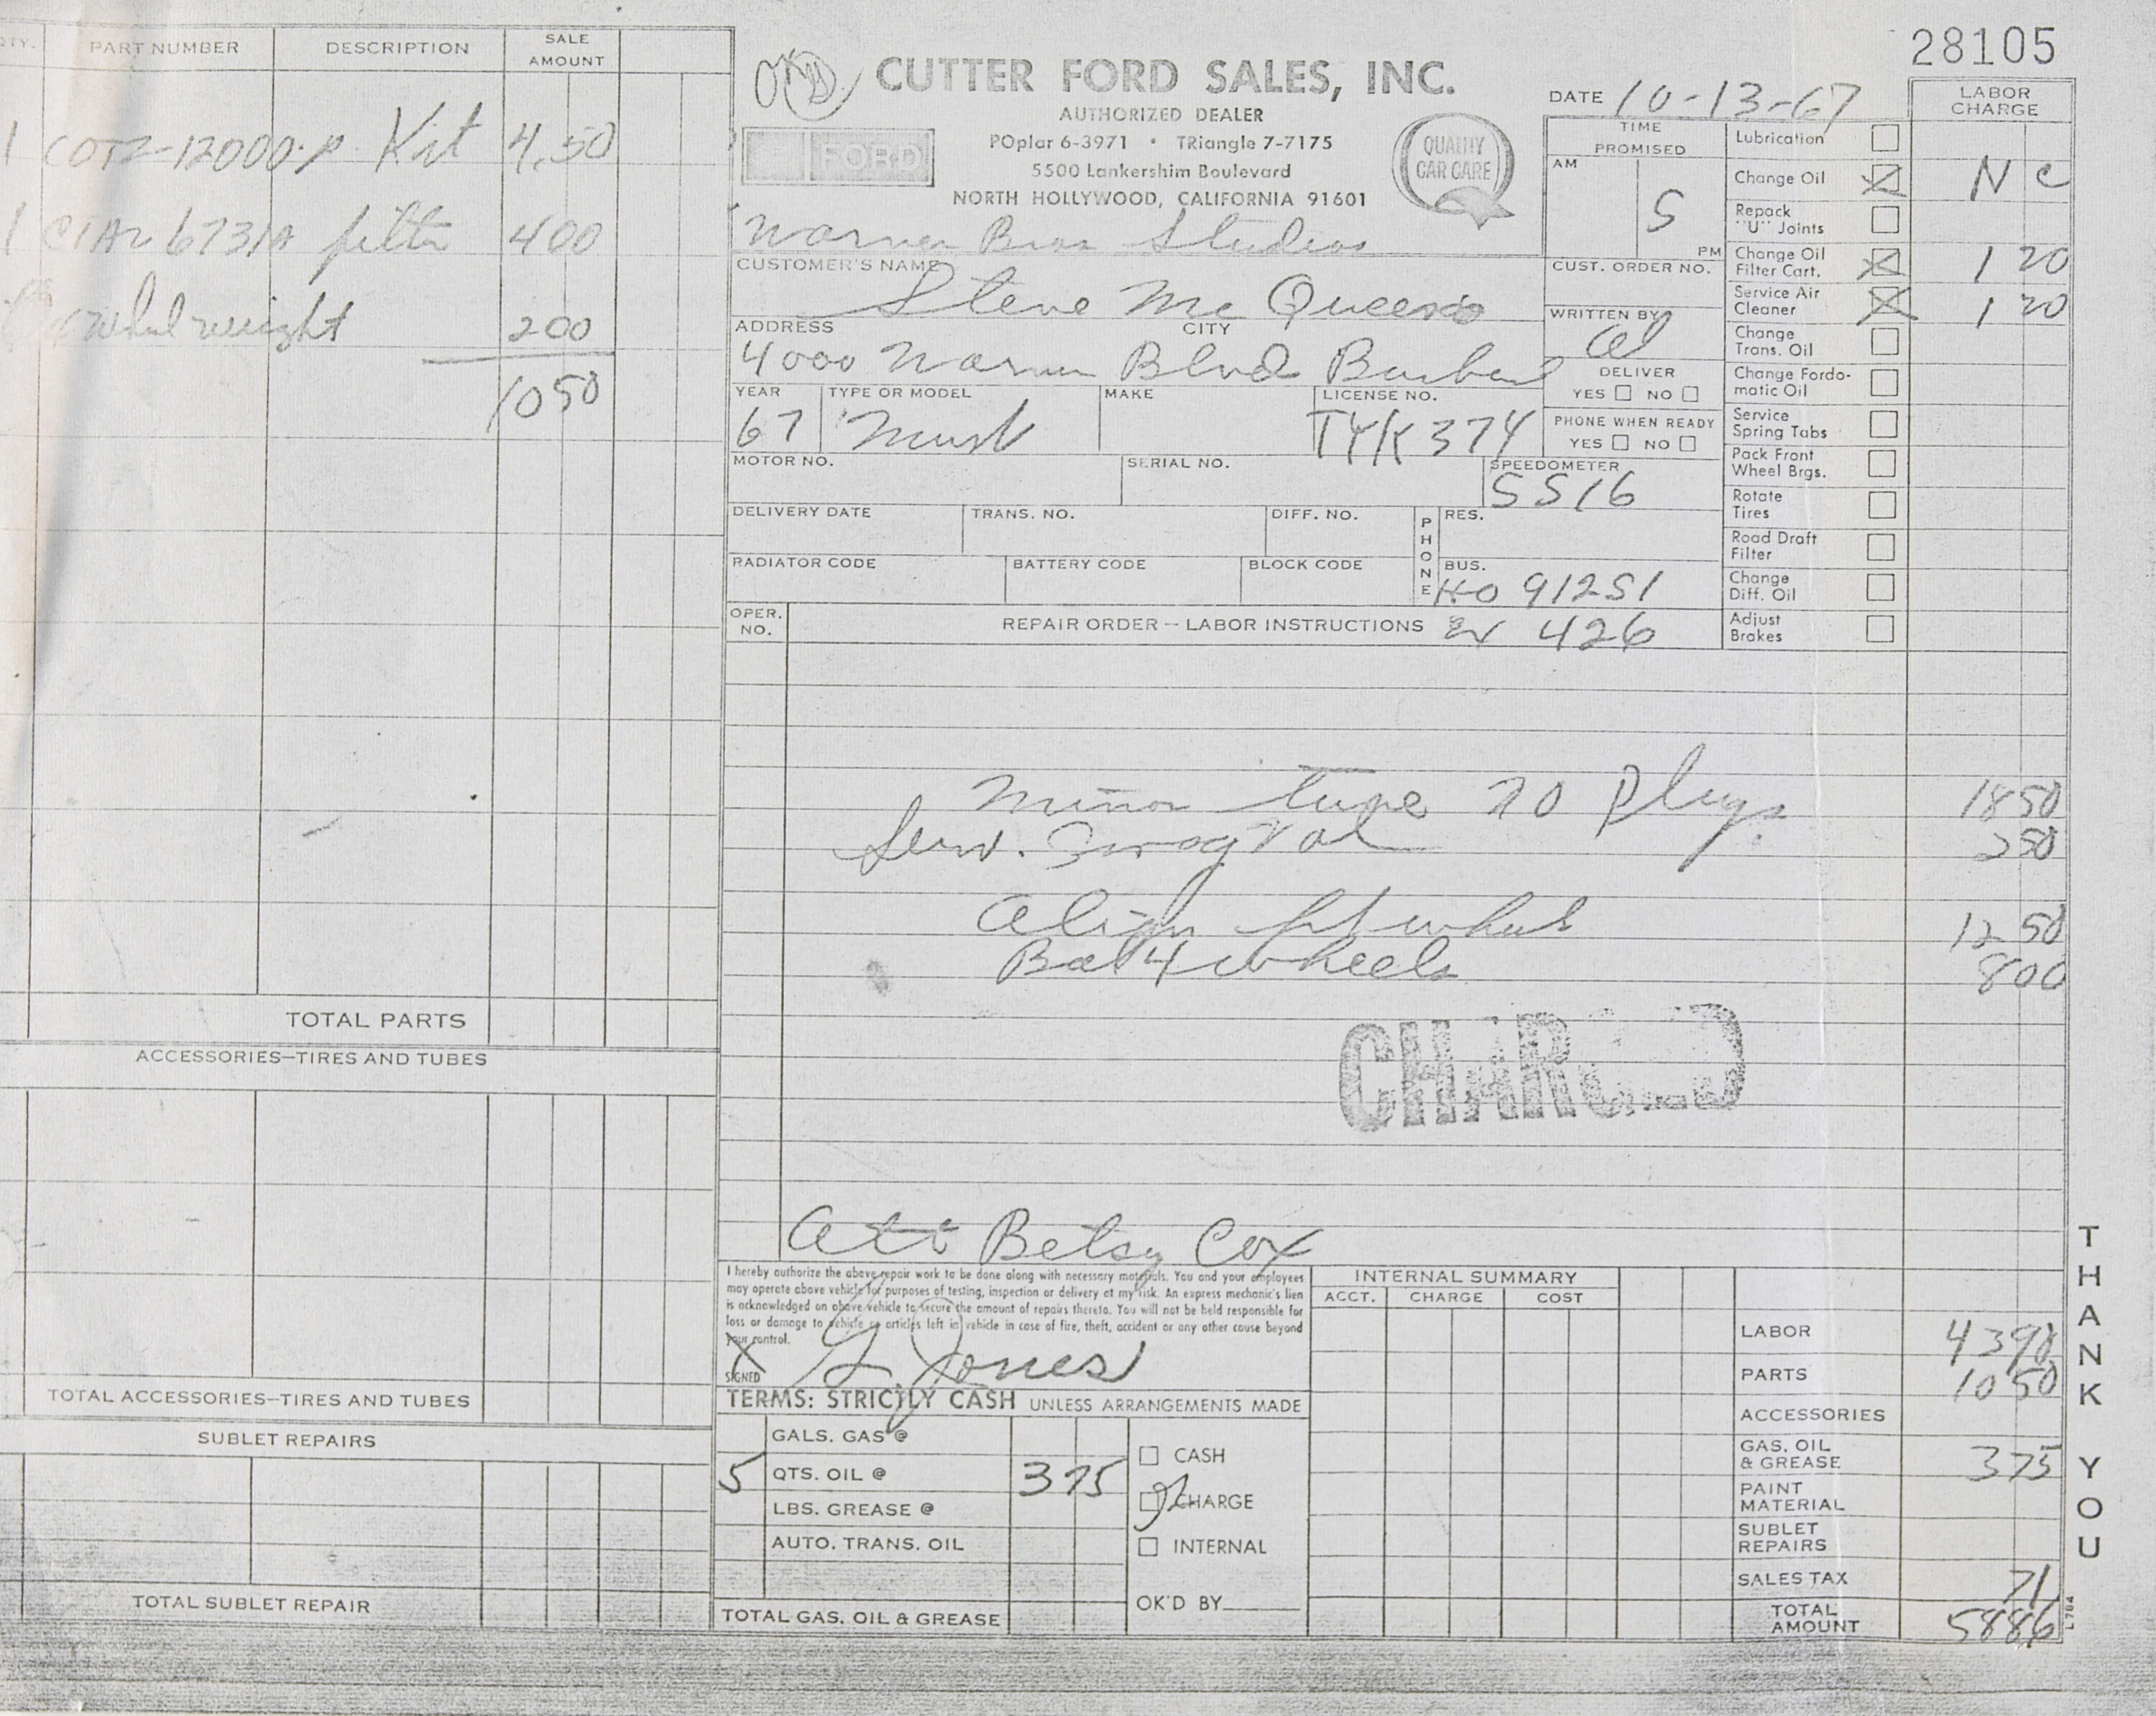 QTY. PART NUMBER DESCRIPTION SALE AMOUNT
1 COTZ-12000-P Kit 4.50
1 C1AZ 6731A filter 4 00
wheel weight 2 00
10 50
TOTAL PARTS
ACCESSORIES—TIRES AND TUBES
TOTAL ACCESSORIES—TIRES AND TUBES
SUBLET REPAIRS
TOTAL SUBLET REPAIR
28105
CUTTER FORD SALES, INC.
AUTHORIZED DEALER
FORD
POplar 6-3971 • TRiangle 7-7175
5500 Lankershim Boulevard
NORTH HOLLYWOOD, CALIFORNIA 91601
QUALITY CAR CARE
DATE 10-13-67
TIME PROMISED
AM
5
PM
Warner Bros Studios
CUSTOMER'S NAME
Steve Mc Queen
CUST. ORDER NO.
WRITTEN BY
Al
ADDRESS CITY
4000 Warner Blvd Burbank
DELIVER
YES NO
YEAR TYPE OR MODEL MAKE LICENSE NO.
67 Must TYK 374
PHONE WHEN READY
YES NO
MOTOR NO. SERIAL NO. SPEEDOMETER
5516
DELIVERY DATE TRANS. NO. DIFF. NO. PHONE RES.
RADIATOR CODE BATTERY CODE BLOCK CODE BUS.
HO 91251
OPER. NO. REPAIR ORDER — LABOR INSTRUCTIONS
426
LABOR CHARGE
Lubrication
Change Oil N C
Repack "U" Joints
Change Oil Filter Cart. 1 20
Service Air Cleaner 1 20
Change Trans. Oil
Change Fordo-matic Oil
Service Spring Tabs
Pack Front Wheel Brgs.
Rotate Tires
Road Draft Filter
Change Diff. Oil
Adjust Brakes
Minor tune no Plugs 18 50
Serv. 2 50
Align frt wheels 12 50
Bal 4 wheels 8 00
CHARGED
Att Betsy Cox
I hereby authorize the above repair work to be done along with necessary materials. You and your employees
may operate above vehicle for purposes of testing, inspection or delivery at my risk. An express mechanic's lien
is acknowledged on above vehicle to secure the amount of repairs thereto. You will not be held responsible for
loss or damage to vehicle or articles left in vehicle in case of fire, theft, accident or any other cause beyond
your control.
X
SIGNED Jones
TERMS: STRICTLY CASH UNLESS ARRANGEMENTS MADE
GALS. GAS @
5 QTS. OIL @ 3 75
LBS. GREASE @
AUTO. TRANS. OIL
TOTAL GAS. OIL & GREASE
CASH
CHARGE
INTERNAL
OK'D BY
INTERNAL SUMMARY
ACCT. CHARGE COST
LABOR 43 90
PARTS 10 50
ACCESSORIES
GAS. OIL & GREASE 3 75
PAINT MATERIAL
SUBLET REPAIRS
SALES TAX 71
TOTAL AMOUNT 58 86
L784
THANK YOU